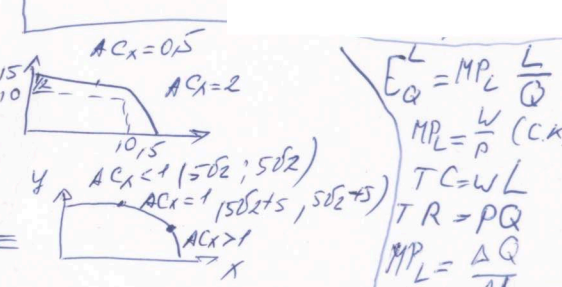 ACx=0,5
15
10
ACx=2
10,5
y
ACx<1 (5√2; 5√2)
ACx=1 (5√2+5, 5√2+5)
ACx>1
x
E^L_Q = MP_L L/Q
MP_L = W/P (С.К
TC=wL
TR=PQ
MP_L = ΔQ